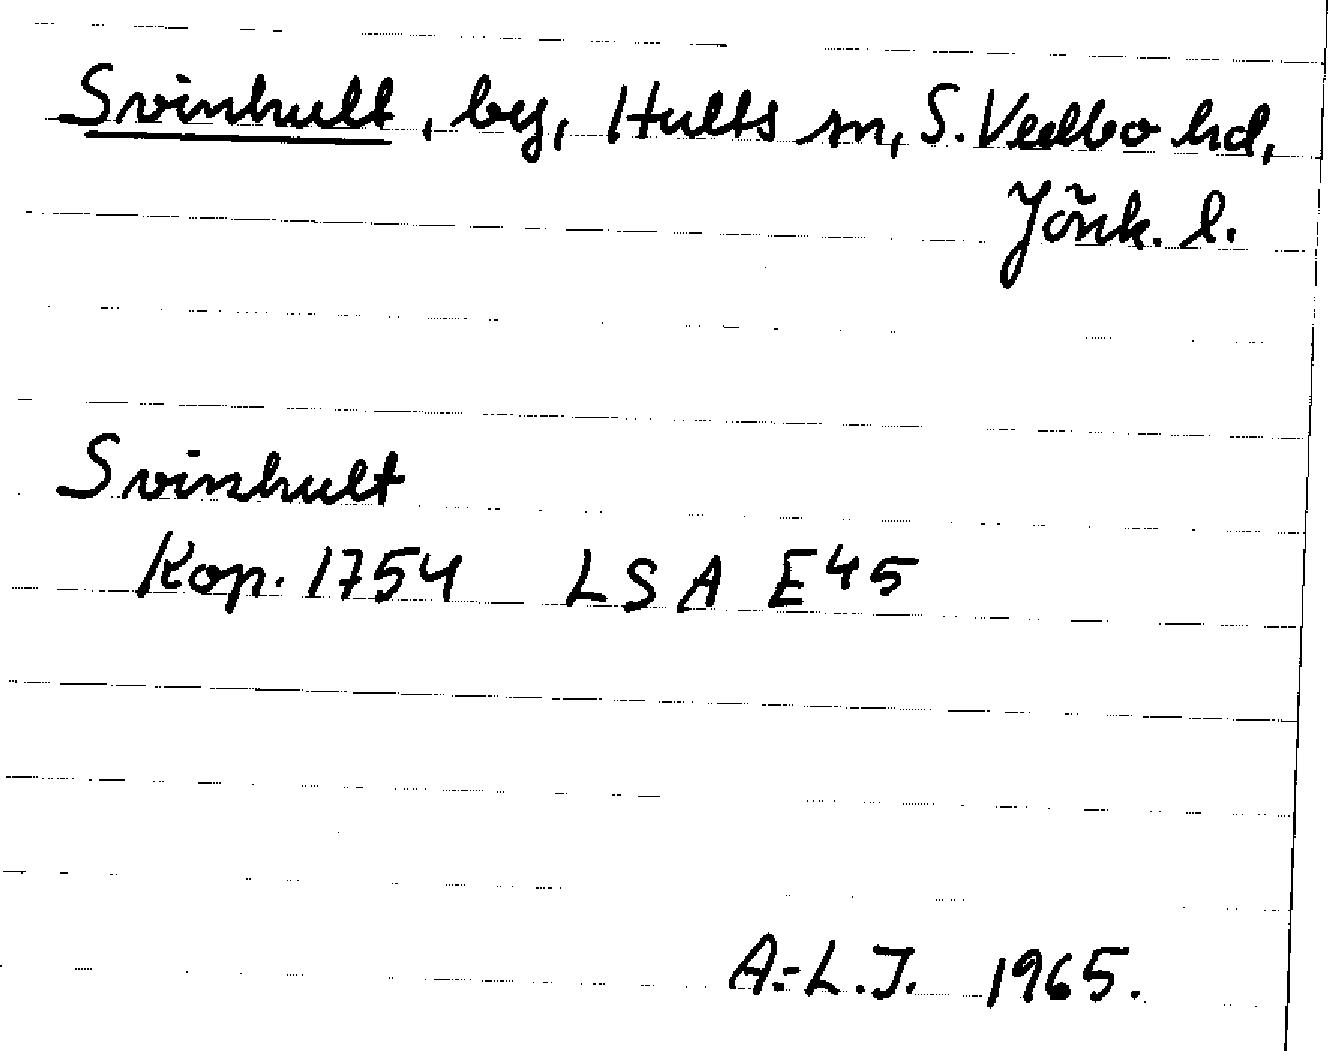 Svinhult, by, Hults sn, S. Vedbo hd,
Jönk. l.
Svinhult
Kop. 1754 LSA E45
A.-L.J. 1965.